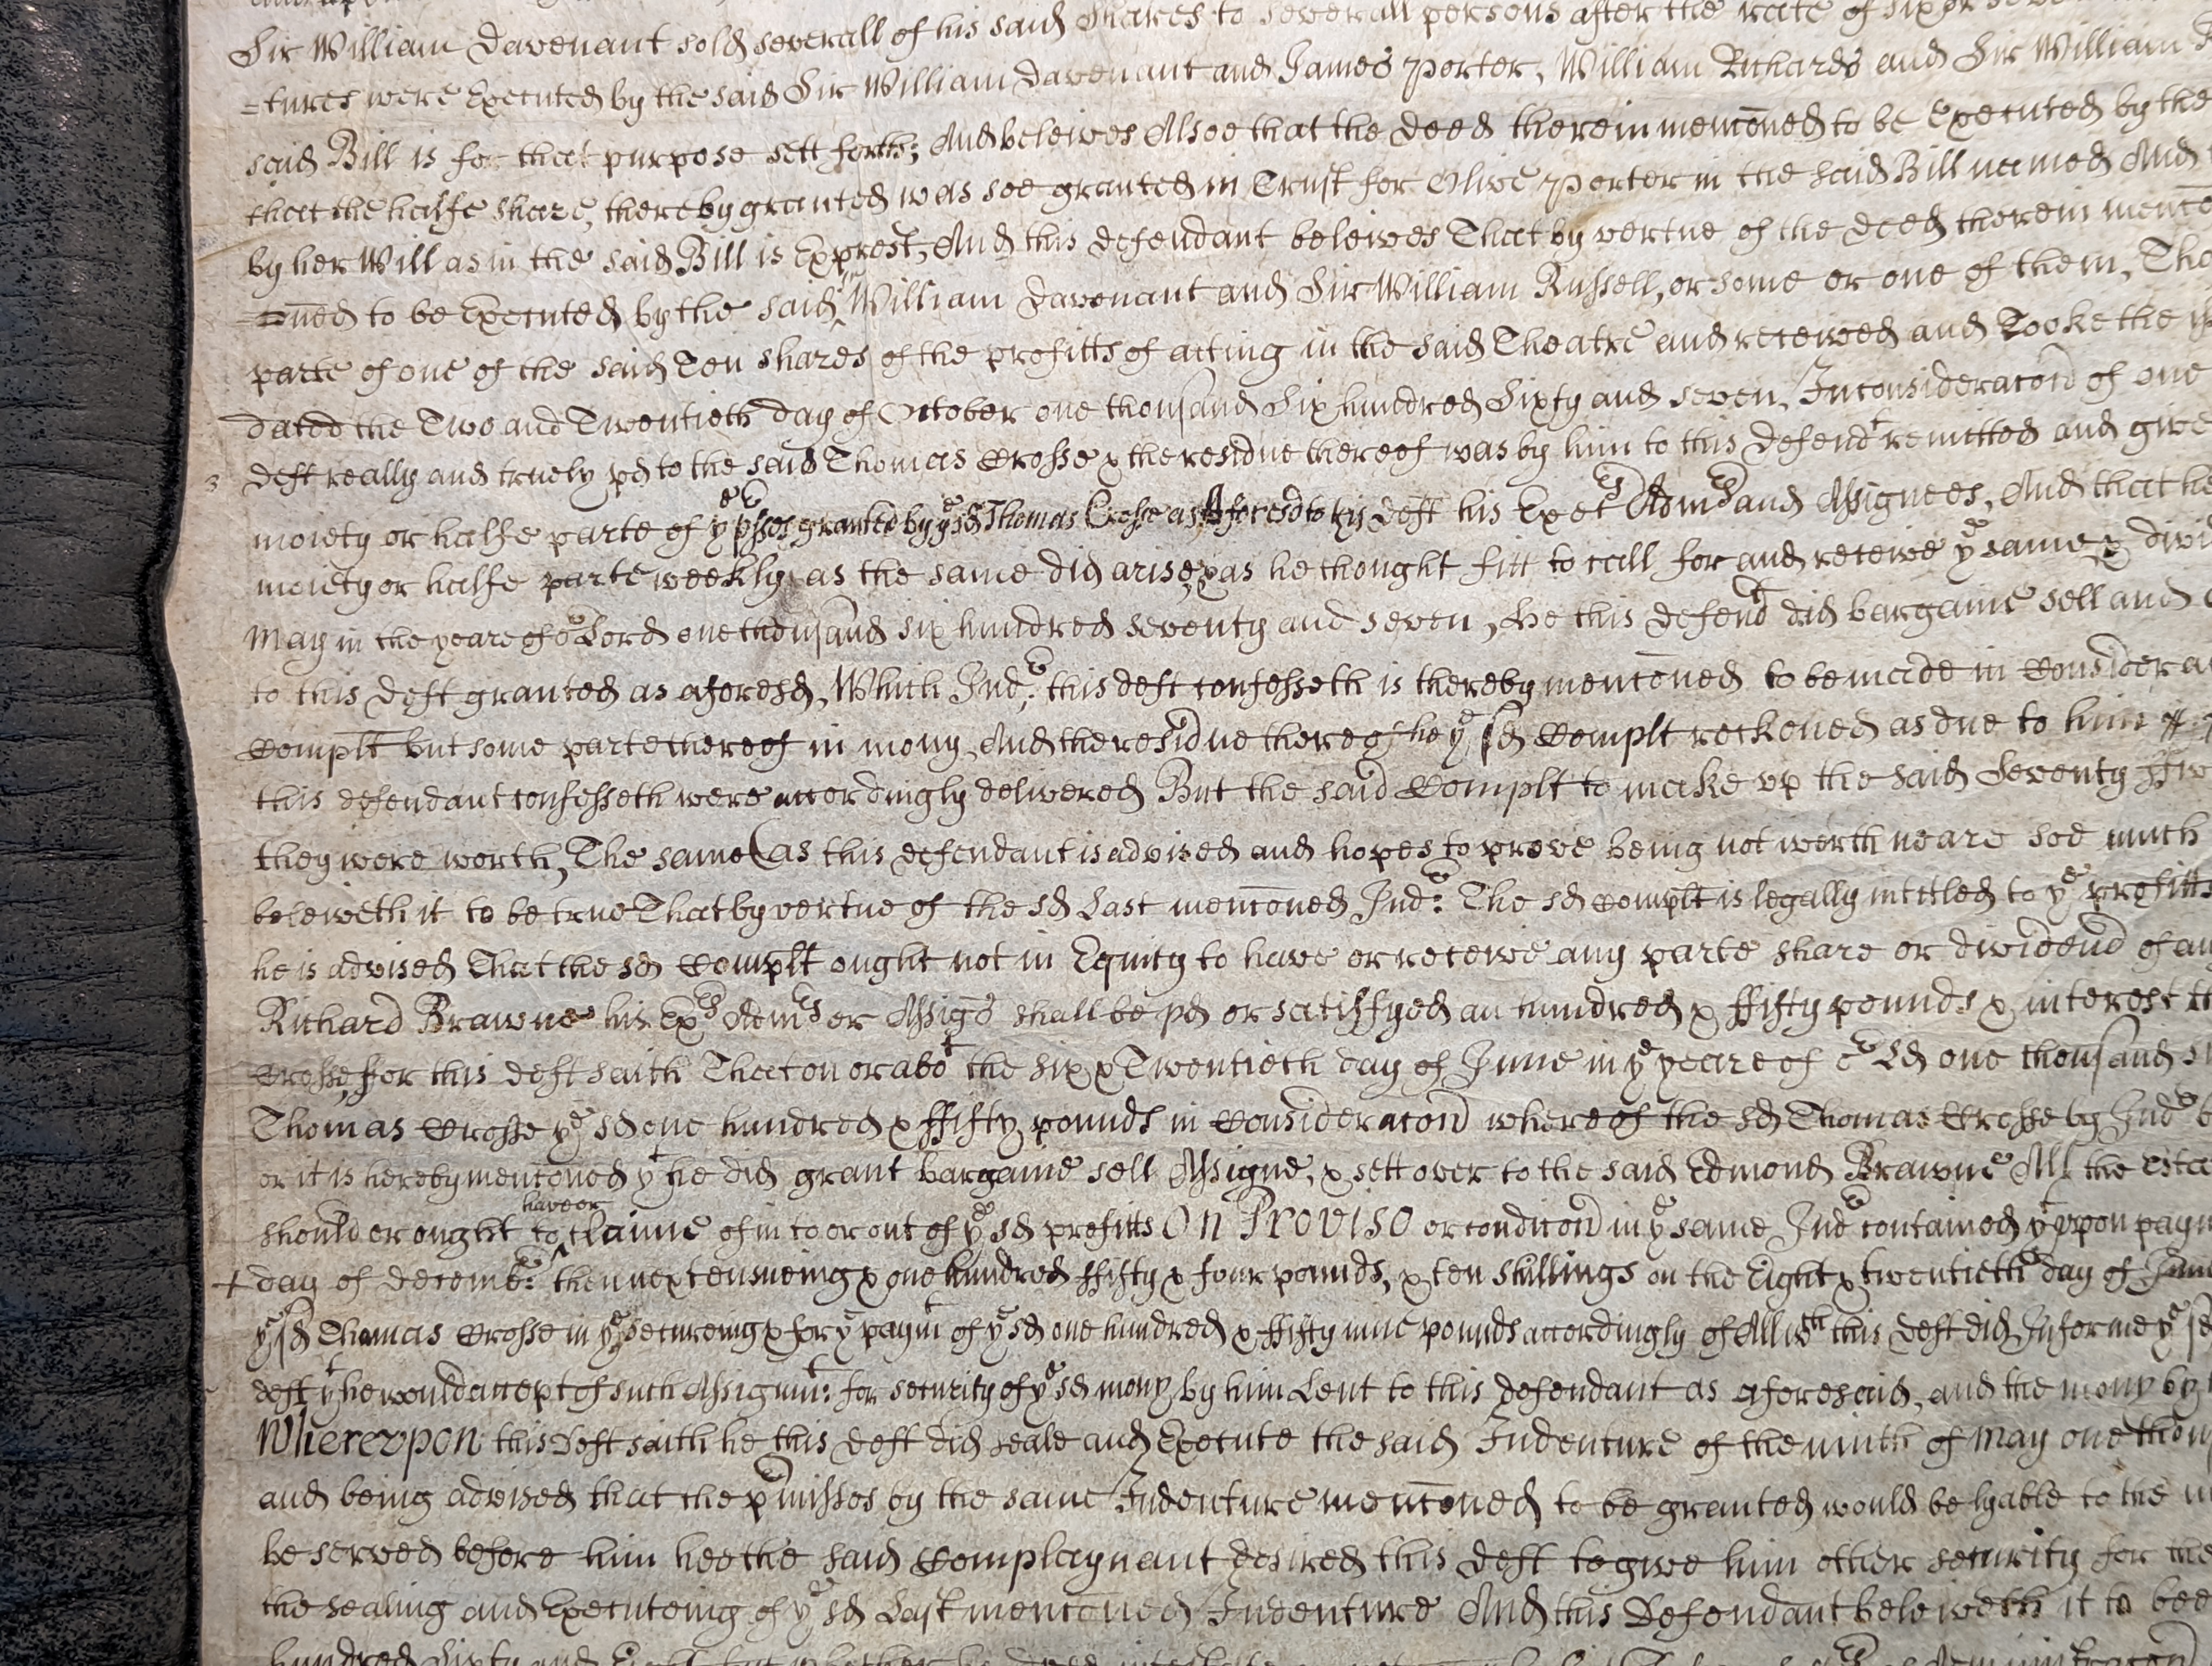 Sir William Davenant sold severall of his said shares to severall persons after the rate of six or
=tures were Executed by the said Sir William Davenant and James Porter, William Richards and Sir William
said Bill is for that purpose sett forth; And beleives Alsoe that the Deed therein menc̄oned to be Executed by the
that the halfe share, thereby granted was soe granted in Trust for Olive Porter in the said Bill named And
by her Will as in the said Bill is Exprest, And this defendant beleives That by vertue of the Deed therein
=oned to be Executed by the said Sr William Davenant and Sir William Russell, or some or one of them, Tho
parte of one of the said Ten shares of the profitts of acting in the said Theatre and received and Tooke the
dated the Two and Twentieth day of October one thousand Six hundred Sixty and seven, In consideracon of one
deft really and truely pd to the said Thomas Crosse & the residue thereof was by him to this Defendt remitted and give
moiety or halfe parte of ye pr̄sses granted by ye sd Thomas Crosse as Aforesd to this deft his Exec̄rs Adm̄rs and Assignees, And that he
moiety or halfe parte weekly as the same did arise, & as he thought fitt to call for and receive ye same, & divi
May in the yeare of or Lord one thousand six hundred seventy and seven, He this defendt did bargaine sell and
to this Deft granted as aforesd, Which Indre: this deft confesseth is thereby menc̄oned to be made in Consider
Complt but some parte thereof in mony, And the residue thereof he ye sd Complt reckoned as due to him
this defendant confesseth were accordingly delivered But the said Complt to make vp the said Seventy
they were worth, The same (as this defendant is advised and hopes to prove being not worth neare soe much
beleiveth it to be true That by vertue of the sd Last menc̄oned Indre: The sd Complt is legally intitled to ye profitts
he is advised That the sd Complt ought not in Equity to have or receive any parte share or dividend of
Richard Brawne his Exrs Admrs or Assigs shall be pd or satisfyed an hundred & ffifty pounds & interest
Crosse, ffor this deft saith That on or abot the six & Twentieth day of June in ye yeare of or Ld one thousand
Thomas Crosse ye sd one hundred & ffifty pounds in Consideracon whereof the sd Thomas Crosse by Indre
or it is hereby menc̄oned yt he did grant bargaine sell Assigne, & sett over to the said Edmond Brawne All the
should or ought to have or claime of in to or out of ye sd profitts On Proviso or condicon in ye same Indre contained yt vpon
+ day of Decembr: then next ensueing & one hundred ffifty & four pounds, & ten shillings on the Eight & twentieth day of
ye sd Thomas Crosse in ye secureing & for ye paymt of ye sd one hundred & ffifty nine pounds accordingly of All wch this Deft did Informe ye sd
deft yt he would accept of such Assignmt: for security of ye sd mony by him Lent to this defendant as aforesaid, and the mony by
Wherevpon this Deft saith he this Deft did seale and Execute the said Indenture of the ninth of May one
and being advised that the pr̄misses by the same Indenture menc̄oned to be granted would be lyable to the
he served before him hee the said Complaynant desired this Deft to give him other security for
the sealing and Executeing of ye sd Last menc̄oned Indenture And this Defendant beleiveth it to bee
hundred Sixty and Eight